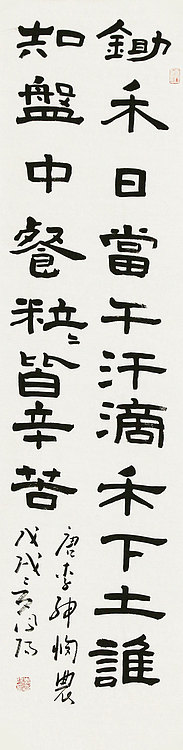 鋤禾日當午汗滴禾下土誰
知盤中餐粒〻皆辛苦
唐李紳憫農
戊戌